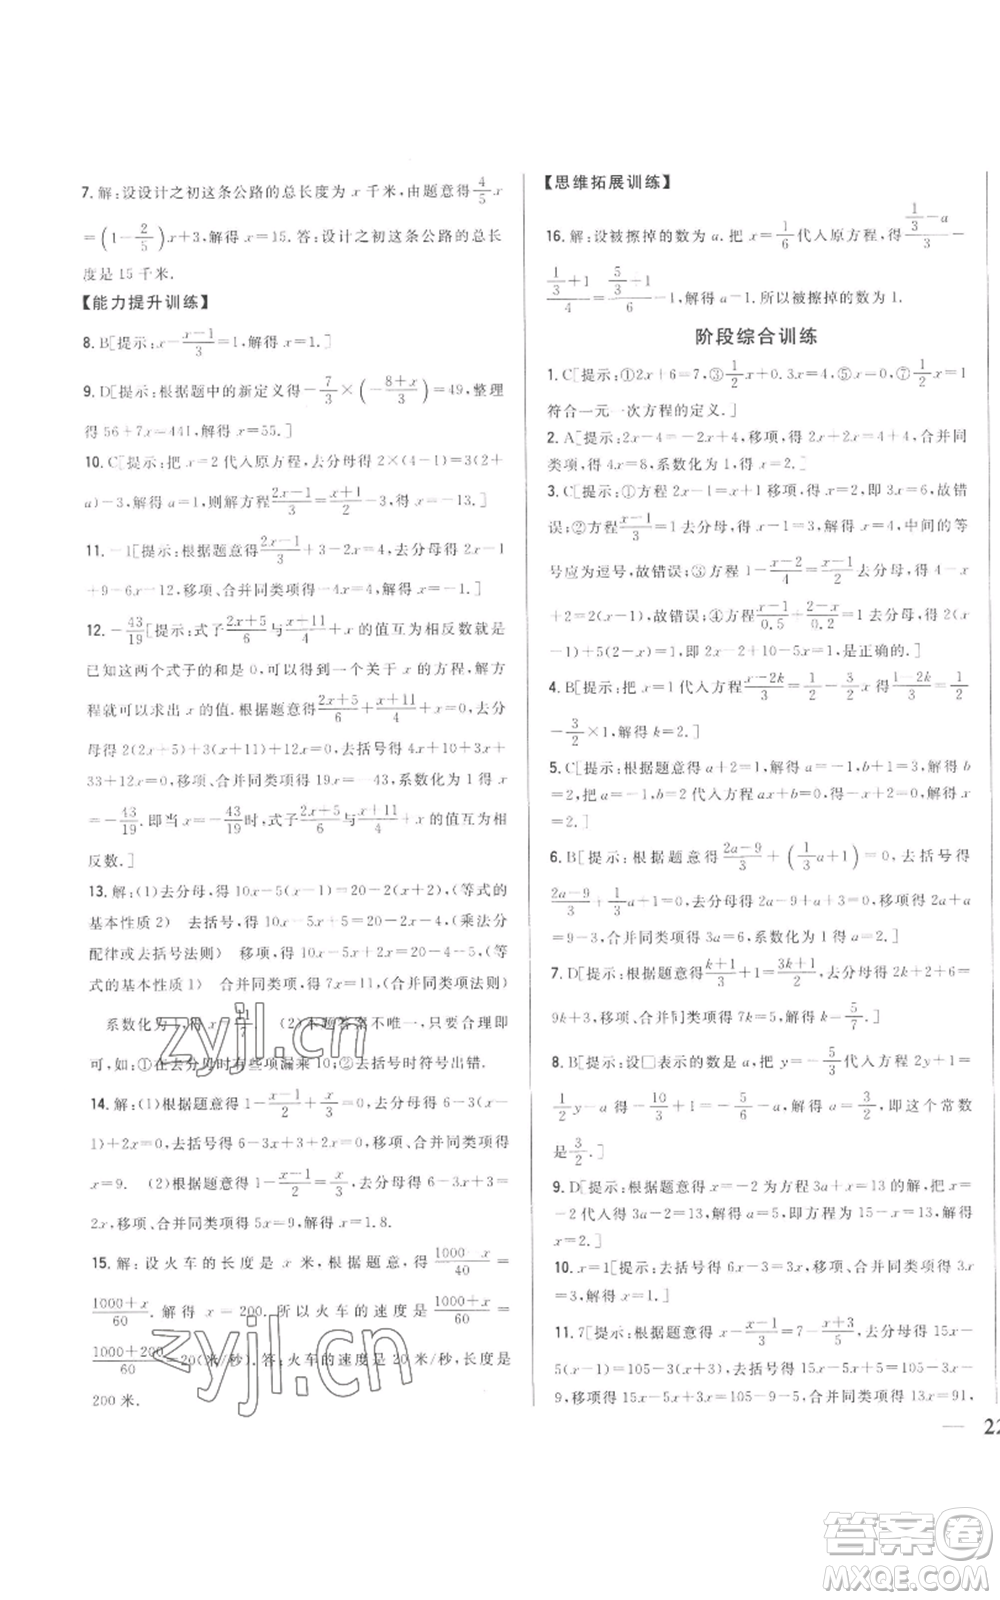 7. 解:设设计之初这条公路的总长度为 x 千米,由题意得 4/5 x
=(1-2/5)x+3,解得 x=15. 答:设计之初这条公路的总长
度是 15 千米.
【能力提升训练】
8. B[提示:x-(x-1)/3=1,解得 x=1.]
9. D[提示:根据题中的新定义得-7/3×(-(8+x)/3)=49,整理
得 56+7x=441,解得 x=55.]
10. C[提示:把 x=2 代入原方程,去分母得 2×(4-1)=3(2+
a)-3,解得 a=1,则解方程(2x-1)/3=(x+1)/2-3,得 x=-13.]
11. -1[提示:根据题意得(2x-1)/3+3-2x=4,去分母得 2x-1
+9-6x=12,移项、合并同类项得-4x=4,解得 x=-1.]
12. -43/19[提示:式子(2x+5)/6与(x+11)/4+x 的值互为相反数就是
已知这两个式子的和是 0,可以得到一个关于 x 的方程,解方
程就可以求出 x 的值. 根据题意得(2x+5)/6+(x+11)/4+x=0,去分
母得 2(2x+5)+3(x+11)+12x=0,去括号得 4x+10+3x+
33+12x=0,移项、合并同类项得 19x=-43,系数化为 1 得 x
=-43/19. 即当 x=-43/19时,式子(2x+5)/6与(x+11)/4+x 的值互为相
反数.]
13. 解:(1)去分母,得 10x-5(x-1)=20-2(x+2),(等式的
基本性质 2) 去括号,得 10x-5x+5=20-2x-4,(乘法分
配律或去括号法则) 移项,得 10x-5x+2x=20-4-5,(等
式的基本性质 1) 合并同类项,得 7x=11,(合并同类项法则)
系数化为 1,得 x=11/7 (2)本题答案不唯一,只要合理即
可,如:①在去分母时有些项漏乘 10;②去括号时符号出错.
14. 解:(1)根据题意得 1-(x-1)/2+x/3=0,去分母得 6-3(x-
1)+2x=0,去括号得 6-3x+3+2x=0,移项、合并同类项得
x=9. (2)根据题意得 1-(x-1)/2=x/3,去分母得 6-3x+3=
2x,移项、合并同类项得 5x=9,解得 x=1.8.
15. 解:设火车的长度是 x 米,根据题意得(1000-x)/40=
(1000+x)/60. 解得 x=200. 所以火车的速度是(1000+x)/60=
(1000+200)/60=20(米/秒). 答:火车的速度是 20 米/秒,长度是
200 米.
【思维拓展训练】
16. 解:设被擦掉的数为 a. 把 x=1/6代入原方程,得(1/3-a)/3-
(1/3+1)/4=(5/3+1)/6-1,解得 a=1. 所以被擦掉的数为 1.
阶段综合训练
1. C[提示:①2x+6=7,③1/2x+0.3=4,⑤x=0,⑦1/2x=1
符合一元一次方程的定义.]
2. A[提示:2x-4=-2x+4,移项,得 2x+2x=4+4,合并同
类项,得 4x=8,系数化为 1,得 x=2.]
3. C[提示:①方程 2x-1=x+1移项,得 x=2,即 3x=6,故错
误;②方程(x-1)/3=1去分母,得 x-1=3,解得 x=4,中间的等
号应为逗号,故错误;③方程 1-(x-2)/4=(x-1)/2去分母,得 4-x
+2=2(x-1),故错误;④方程(x-1)/0.5+(2-x)/0.2=1去分母,得 2(x
-1)+5(2-x)=1,即 2x-2+10-5x=1,是正确的.]
4. B[提示:把 x=1 代入方程(x-2k)/3=1/2-3/2x得(1-2k)/3=1/2
-3/2×1,解得 k=2.]
5. C[提示:根据题意得 a+2=1,解得 a=-1,b+1=3,解得 b
=2,把 a=-1,b=2 代入方程 ax+b=0,得-x+2=0,解得 x
=2.]
6. B[提示:根据题意得(2a-9)/3+(1/3a+1)=0,去括号得
(2a-9)/3+1/3a+1=0,去分母得 2a-9+a+3=0,移项得 2a+a
=9-3,合并同类项得 3a=6,系数化为 1 得 a=2.]
7. D[提示:根据题意得(k+1)/3+1=(3k+1)/2,去分母得 2k+2+6=
9k+3,移项、合并同类项得 7k=5,解得 k=5/7.]
8. B[提示:设□表示的数是 a,把 y=-5/3代入方程 2y+1=
1/2y-a 得-10/3+1=-5/6-a,解得 a=3/2,即这个常数
是3/2.]
9. D[提示:根据题意得 x=-2 为方程 3a+x=13 的解,把 x=
-2代入得 3a-2=13,解得 a=5,即方程为 15-x=13,解得 x
=2.]
10. x=1[提示:去括号得 6x-3+3x=6,移项、合并同类项得 9x
=9,系数化为 1 得 x=1.]
11. 7[提示:根据题意得 x-(x-1)/3=7-(x+3)/5,去分母得 15x-
5(x-1)=105-3(x+3),去括号得 15x-5x+5=105-3x-
9,移项得 15x-5x+3x=105-9-5,合并同类项得 13x=91,
22
zyjl.cn
zyjl.cn
答案卷
MXQE.COM